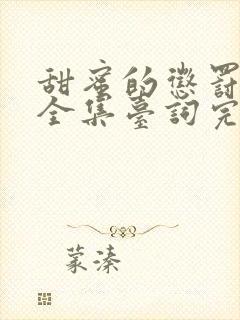 甜蜜的懲罰
全集臺詞完
蒙溱